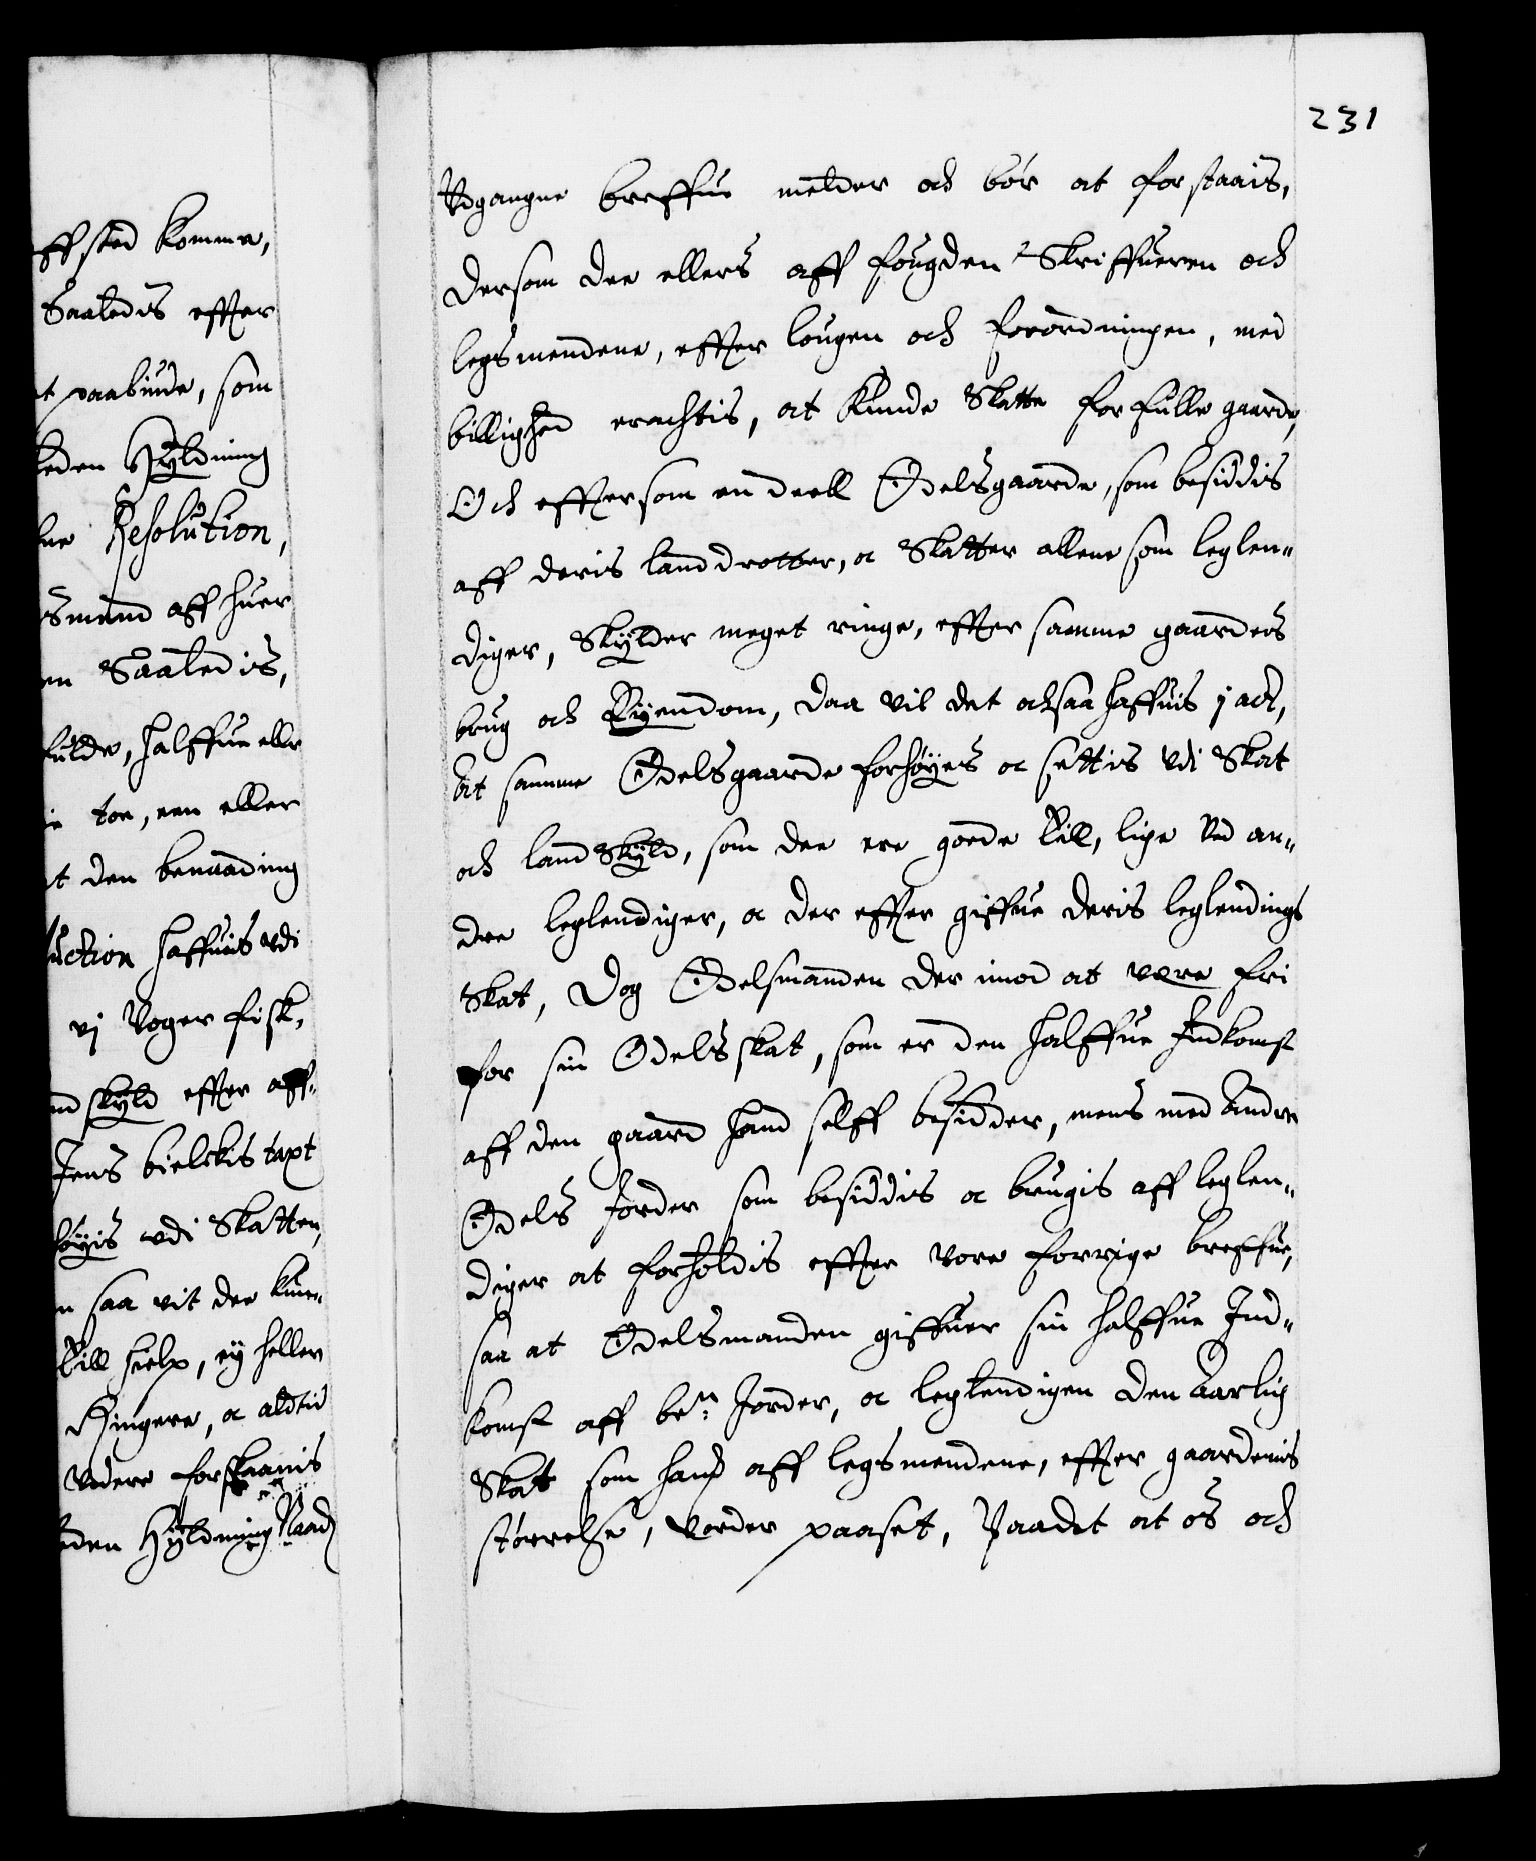 231
ffsted komme,
Saaledis effter
t paabiude, som
leden Hÿldning
ne Resolution,
smend aff huer
en Saaledis,
fulde, halffue eller
ie toe, een eller
t den benaading
uction haffuis vdi
vj Voger fisk,
nd skÿld effter aff-
Jens bielckis taxt
höÿis vdi Skatten,
n saa vit dee kun-
till hielp, eÿ heller
Ringere, a aldtid
Vdere forskaanis
den Hÿldning Naad
Vdgangne breffue melder och bör at forstaais,
Dersom dee ellers aff fougden Skriffueren och
legsmendene, effter lougen och forordningen, med
billighed erachtis, at kunde Skatte for fulle gaarde,
Och effttersom en deell Ødelsgaarde, som besiddis
aff deris landdrotter, a Skatter allene som leglen-
diger, Skÿlder meget ringe, effter samme gaarders
brug och Eÿendom, daa vil det ochsaa haffuis j act,
at samme Ødelsgaarde forhöÿes a settis vdi Skat
och landSkÿld, som dee ere goede till, lige ved an-
dre leglendiger, a der effter giffue deris leglendings
Skat, Dog Ødelsmanden der imod at være fri
for sin Odelsskat, som er den halffue Indkomst
aff den gaard hand selff besidder, mens med Andre
Ødels Jorder som besiddis a brugis aff leglen-
diger at forholdis effter vore forrige breffue,
saa at Ødelsmanden giffuer sin halffue Ind-
komst aff be:te Jorder, a leglendigen den Aarlig
Skatt som hand aff legsmendene, effter gaardenis
störrelse, vorder paaset, Paadet at os och